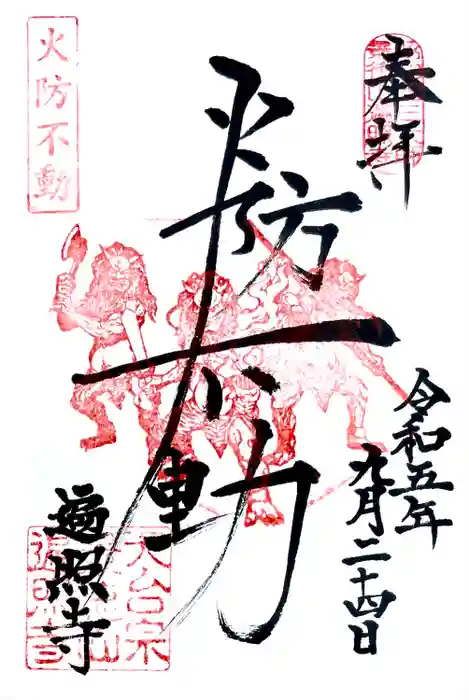 奉拝
令和五年
九月二十四日
火防不動
火防不動
遍照寺
天台宗
遍照寺